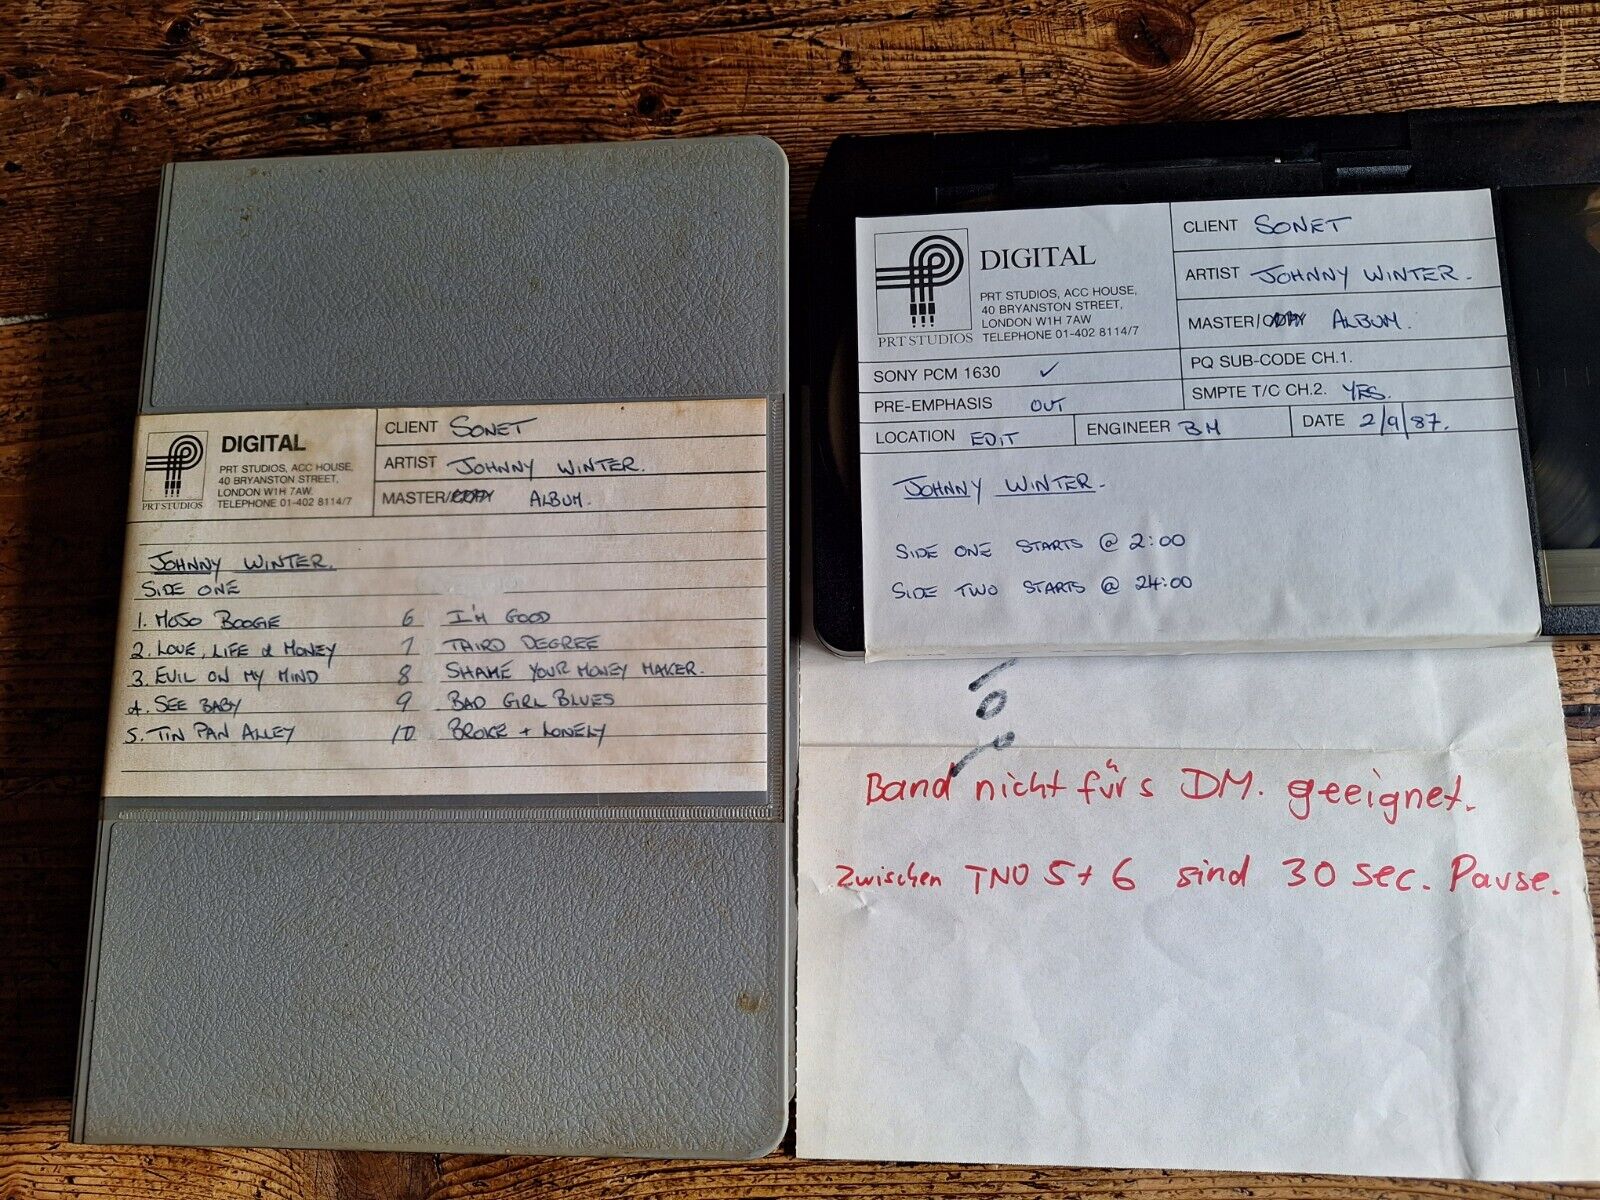 DIGITAL
PRT STUDIOS, ACC HOUSE,
40 BRYANSTON STREET,
LONDON W1H 7AW.
TELEPHONE 01-402 8114/7
PRT STUDIOS
CLIENT SONET
ARTIST JOHNNY WINTER.
MASTER/COPY ALBUM.
JOHNNY WINTER.
SIDE ONE
1. MOJO BOOGIE
2. LOVE, LIFE & MONEY
3. EVIL ON MY MIND
4. SEE BABY
5. TIN PAN ALLEY
6 I'M GOOD
7 THIRD DEGREE
8 SHAME YOUR MONEY MAKER.
9 BAD GIRL BLUES
10 BROKE + LONELY
DIGITAL
PRT STUDIOS, ACC HOUSE,
40 BRYANSTON STREET,
LONDON W1H 7AW
TELEPHONE 01-402 8114/7
PRT STUDIOS
CLIENT SONET
ARTIST JOHNNY WINTER.
MASTER/COPY ALBUM.
SONY PCM 1630 ✓
PQ SUB-CODE CH.1.
PRE-EMPHASIS OUT
SMPTE T/C CH.2. YES.
LOCATION EDIT
ENGINEER BM
DATE 2/9/87.
JOHNNY WINTER.
SIDE ONE STARTS @ 2:00
SIDE TWO STARTS @ 24:00
Band nicht für's DM. geeignet.
Zwischen TNO 5+6 sind 30 sec. Pause.